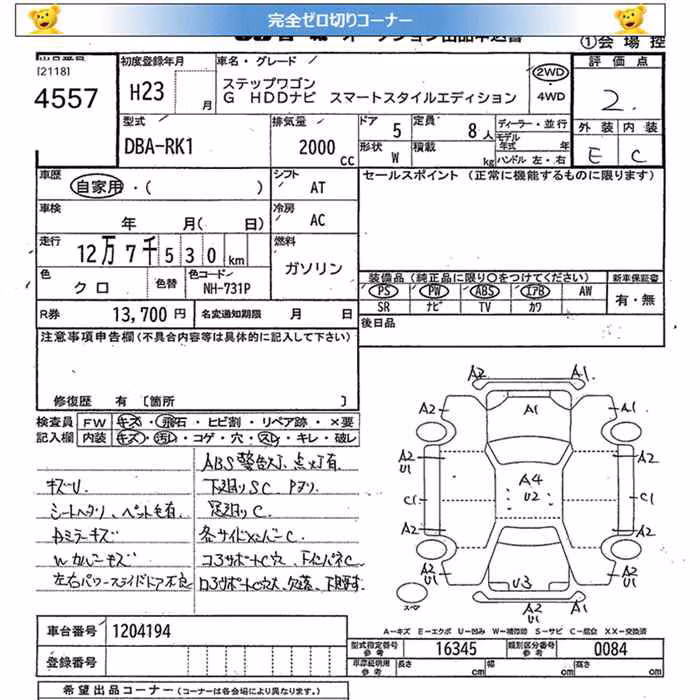 完全ゼロ切りコーナー
①会 場 控
[2118]
4557
初度登録年月
H23 月
車名・グレード
ステップワゴン
G HDDナビ スマートスタイルエディション
2WD
・
4WD
評 価 点
2.
外 装 内 装
E C
型式
DBA-RK1
排気量
2000 cc
ドア 5
定員 8 人
形状 W
積載 kg
ディーラー・並行
モデル
年式 年
ハンドル 左・右
車歴
自家用・( )
シフト
AT
セールスポイント (正常に機能するものに限ります)
車検
年 月( 日)
冷房
AC
走行
12万7千530 km
燃料
ガソリン
色
クロ
色替
色コード
NH-731P
装備品 (純正品に限り○をつけてください)
新車保証書
PS PW ABS エアB AW
SR ナビ TV カワ
有・無
R券 13,700 円
名変通知期限 月 日
後日品
注意事項申告欄 (不具合内容等は具体的に記入して下さい)
修復歴 有 [箇所 ]
検査員 FW キズ・飛石・ヒビ割・リペア跡・×要
記入欄 内装 キズ・汚レ・コゲ・穴・スレ・キレ・破レ
ABS警告灯、点灯有
キズU 下廻りSC、Pヌリ
シートヘタリ、ペット毛有 足廻りC
Dミラーキズ 各サイド
キズ コアサポートC穴
左右パワースライドドア不良 コアサポートC穴大、欠落
A2 A1
A2 A1 A1
A2 U1 A2
C1 A4 U2 C1
A2 A2
A2 U1 U3 A2 U1
A2 U1
スペア
A-キズ E-エクボ U-凹み W-補修跡 S-サビ C-腐食 XX-交換済
車台番号 1204194
登録番号
型式指定番号 参考 16345
類別区分番号 参考 0084
車庫証明用 参考 長さ cm 幅 cm 高さ cm
希望出品コーナー (コーナーは各会場により異なります。)